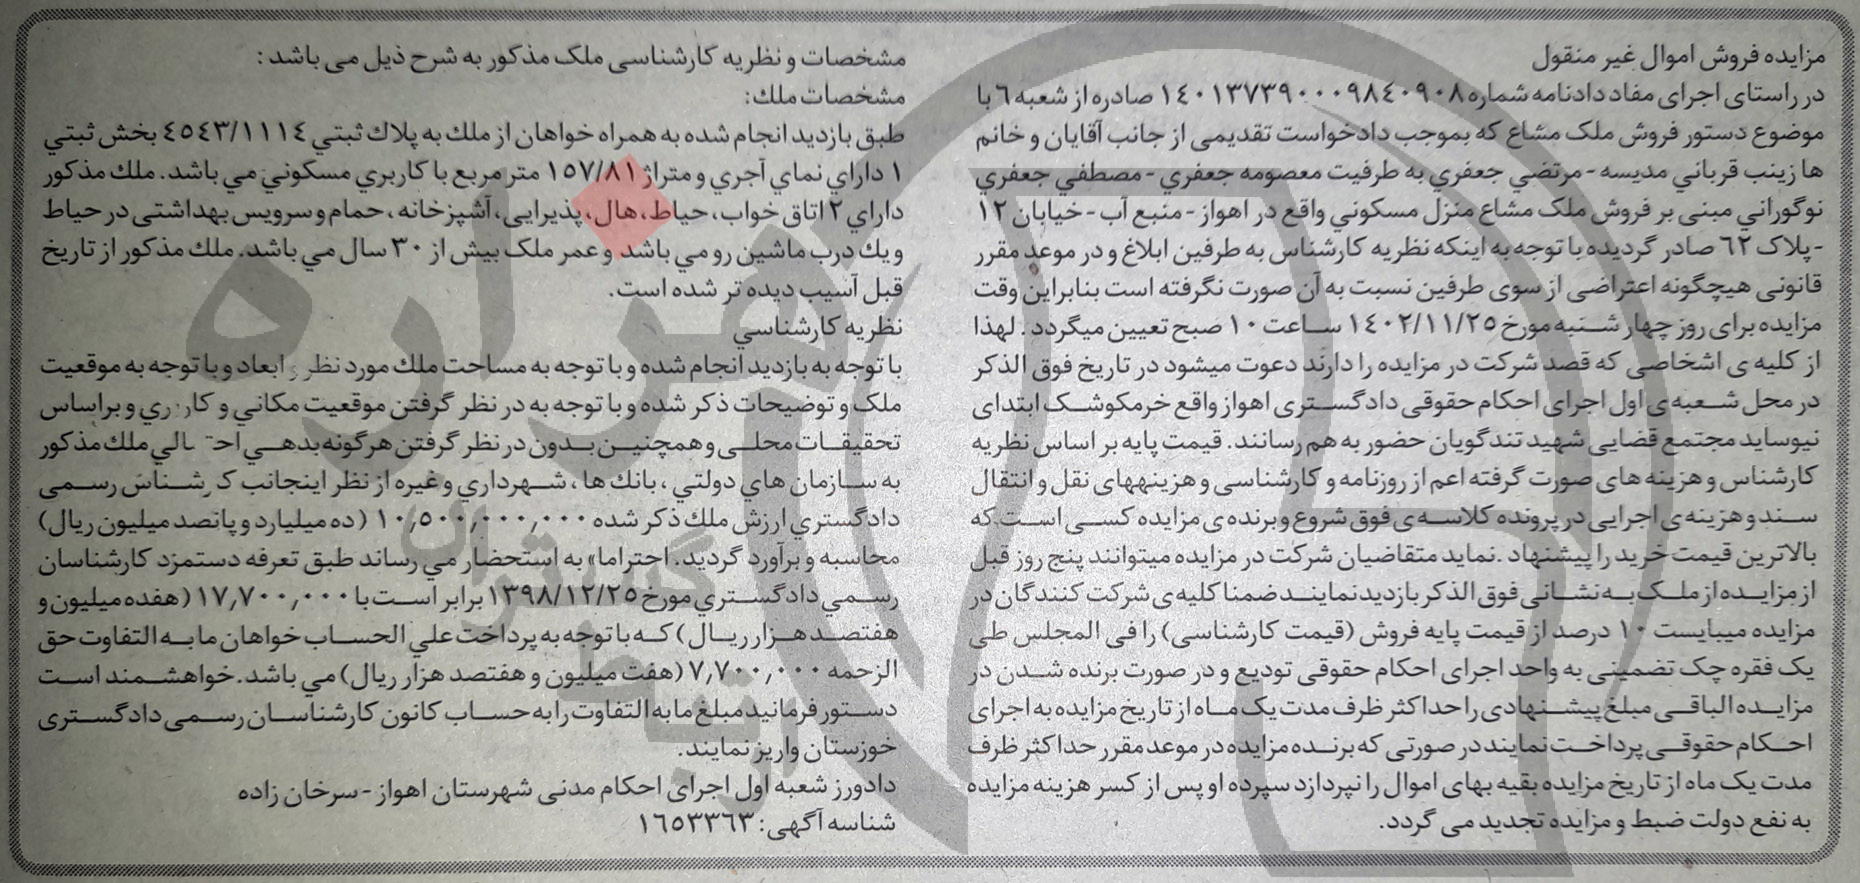 مزایده فروش اموال غیر منقول
در راستای اجرای مفاد دادنامه شماره ۱۴۰۱۳۷۳۹۰۰۰۹۸۴۰۹۰۸ صادره از شعبه ۶ با
موضوع دستور فروش ملک مشاع که بموجب دادخواست تقدیمی از جانب آقایان و خانم
ها زینب قرباني مدیسه - مرتضي جعفري به طرفیت معصومه جعفري - مصطفي جعفري
نوگوراني مبنی بر فروش ملک مشاع منزل مسکوني واقع در اهواز - منبع آب - خیابان ۱۲
- پلاک ۶۲ صادر گردیده با توجه به اینکه نظریه کارشناس به طرفین ابلاغ و در موعد مقرر
قانونی هیچگونه اعتراضی از سوی طرفین نسبت به آن صورت نگرفته است بنابراین وقت
مزایده برای روز چهار شنبه مورخ ۱۴۰۲/۱۱/۲۵ ساعت ۱۰ صبح تعیین میگردد . لهذا
از کلیه ی اشخاصی که قصد شرکت در مزایده را دارند دعوت میشود در تاریخ فوق الذکر
در محل شعبه ی اول اجرای احکام حقوقی دادگستری اهواز واقع خرمکوشک ابتدای
نیوساید مجتمع قضایی شهید تندگویان حضور به هم رسانند . قیمت پایه بر اساس نظریه
کارشناس و هزینه های صورت گرفته اعم از روزنامه و کارشناسی و هزینههای نقل و انتقال
سند و هزینه ی اجرایی در پرونده کلاسه ی فوق شروع و برنده ی مزایده کسی است.که
بالاترین قیمت خرید را پیشنهاد .نماید متقاضیان شرکت در مزایده میتوانند پنج روز قبل
از مزایده از ملک به نشانی فوق الذکر بازدید نمایند ضمنا کلیه ی شرکت کنندگان در
مزایده میبایست ۱۰ درصد از قیمت پایه فروش (قیمت کارشناسی) را فی المجلس طی
یک فقره چک تضمینی به واحد اجرای احکام حقوقی تودیع و در صورت برنده شدن در
مزایده الباقی مبلغ پیشنهادی را حداکثر ظرف مدت یک ماه از تاریخ مزایده به اجرای
احکام حقوقی پرداخت نمایند در صورتی که برنده مزایده در موعد مقرر حداکثر ظرف
مدت یک ماه از تاریخ مزایده بقیه بهای اموال را نپردازد سپرده او پس از کسر هزینه مزایده
به نفع دولت ضبط و مزایده تجدید می گردد.
مشخصات و نظریه کارشناسی ملک مذکور به شرح ذیل می باشد :
مشخصات ملك:
طبق بازدید انجام شده به همراه خواهان از ملك به پلاك ثبتي ۴۵۴۳/۱۱۱۴ بخش ثبتي
۱ داراي نماي آجري و متراژ ۱۵۷/۸۱ متر مربع با کاربري مسکوني مي باشد. ملك مذکور
داراي ۲ اتاق خواب، حیاط، هال، پذیرایی، آشپزخانه ، حمام و سرویس بهداشتی در حیاط
و یك درب ماشین رو مي باشد و عمر ملک بیش از ۳۰ سال مي باشد. ملك مذکور از تاریخ
قبل آسیب دیده تر شده است.
نظریه کارشناسي
با توجه به بازدید انجام شده و با توجه به مساحت ملك مورد نظر و ابعاد و با توجه به موقعیت
ملک و توضیحات ذکر شده و با توجه به در نظر گرفتن موقعیت مکاني و کاربري و براساس
تحقیقات محلی و همچنین بدون در نظر گرفتن هرگونه بدهي احتمالي ملك مذکور
به سازمان هاي دولتي ، بانك ها ، شهرداري و غیره از نظر اینجانب کارشناس رسمی
دادگستري ارزش ملك ذکر شده ۱۰,۵۰۰,۰۰۰,۰۰۰ (ده میلیارد و پانصد میلیون ریال)
محاسبه و برآورد گردید. احتراما» به استحضار مي رساند طبق تعرفه دستمزد کارشناسان
رسمي دادگستري مورخ ۱۳۹۸/۱۲/۲۵ برابر است با ۱۷,۷۰۰,۰۰۰ (هفده میلیون و
هفتصد هزار ریال) که با توجه به پرداخت علي الحساب خواهان ما به التفاوت حق
الزحمه ۷,۷۰۰,۰۰۰ (هفت میلیون و هفتصد هزار ریال) مي باشد. خواهشمند است
دستور فرمانید مبلغ ما به التفاوت را به حساب کانون کارشناسان رسمی دادگستری
خوزستان واریز نمایند.
دادورز شعبه اول اجرای احکام مدنی شهرستان اهواز - سرخان زاده
شناسه آگهی: ۱۶۵۳۳۶۳